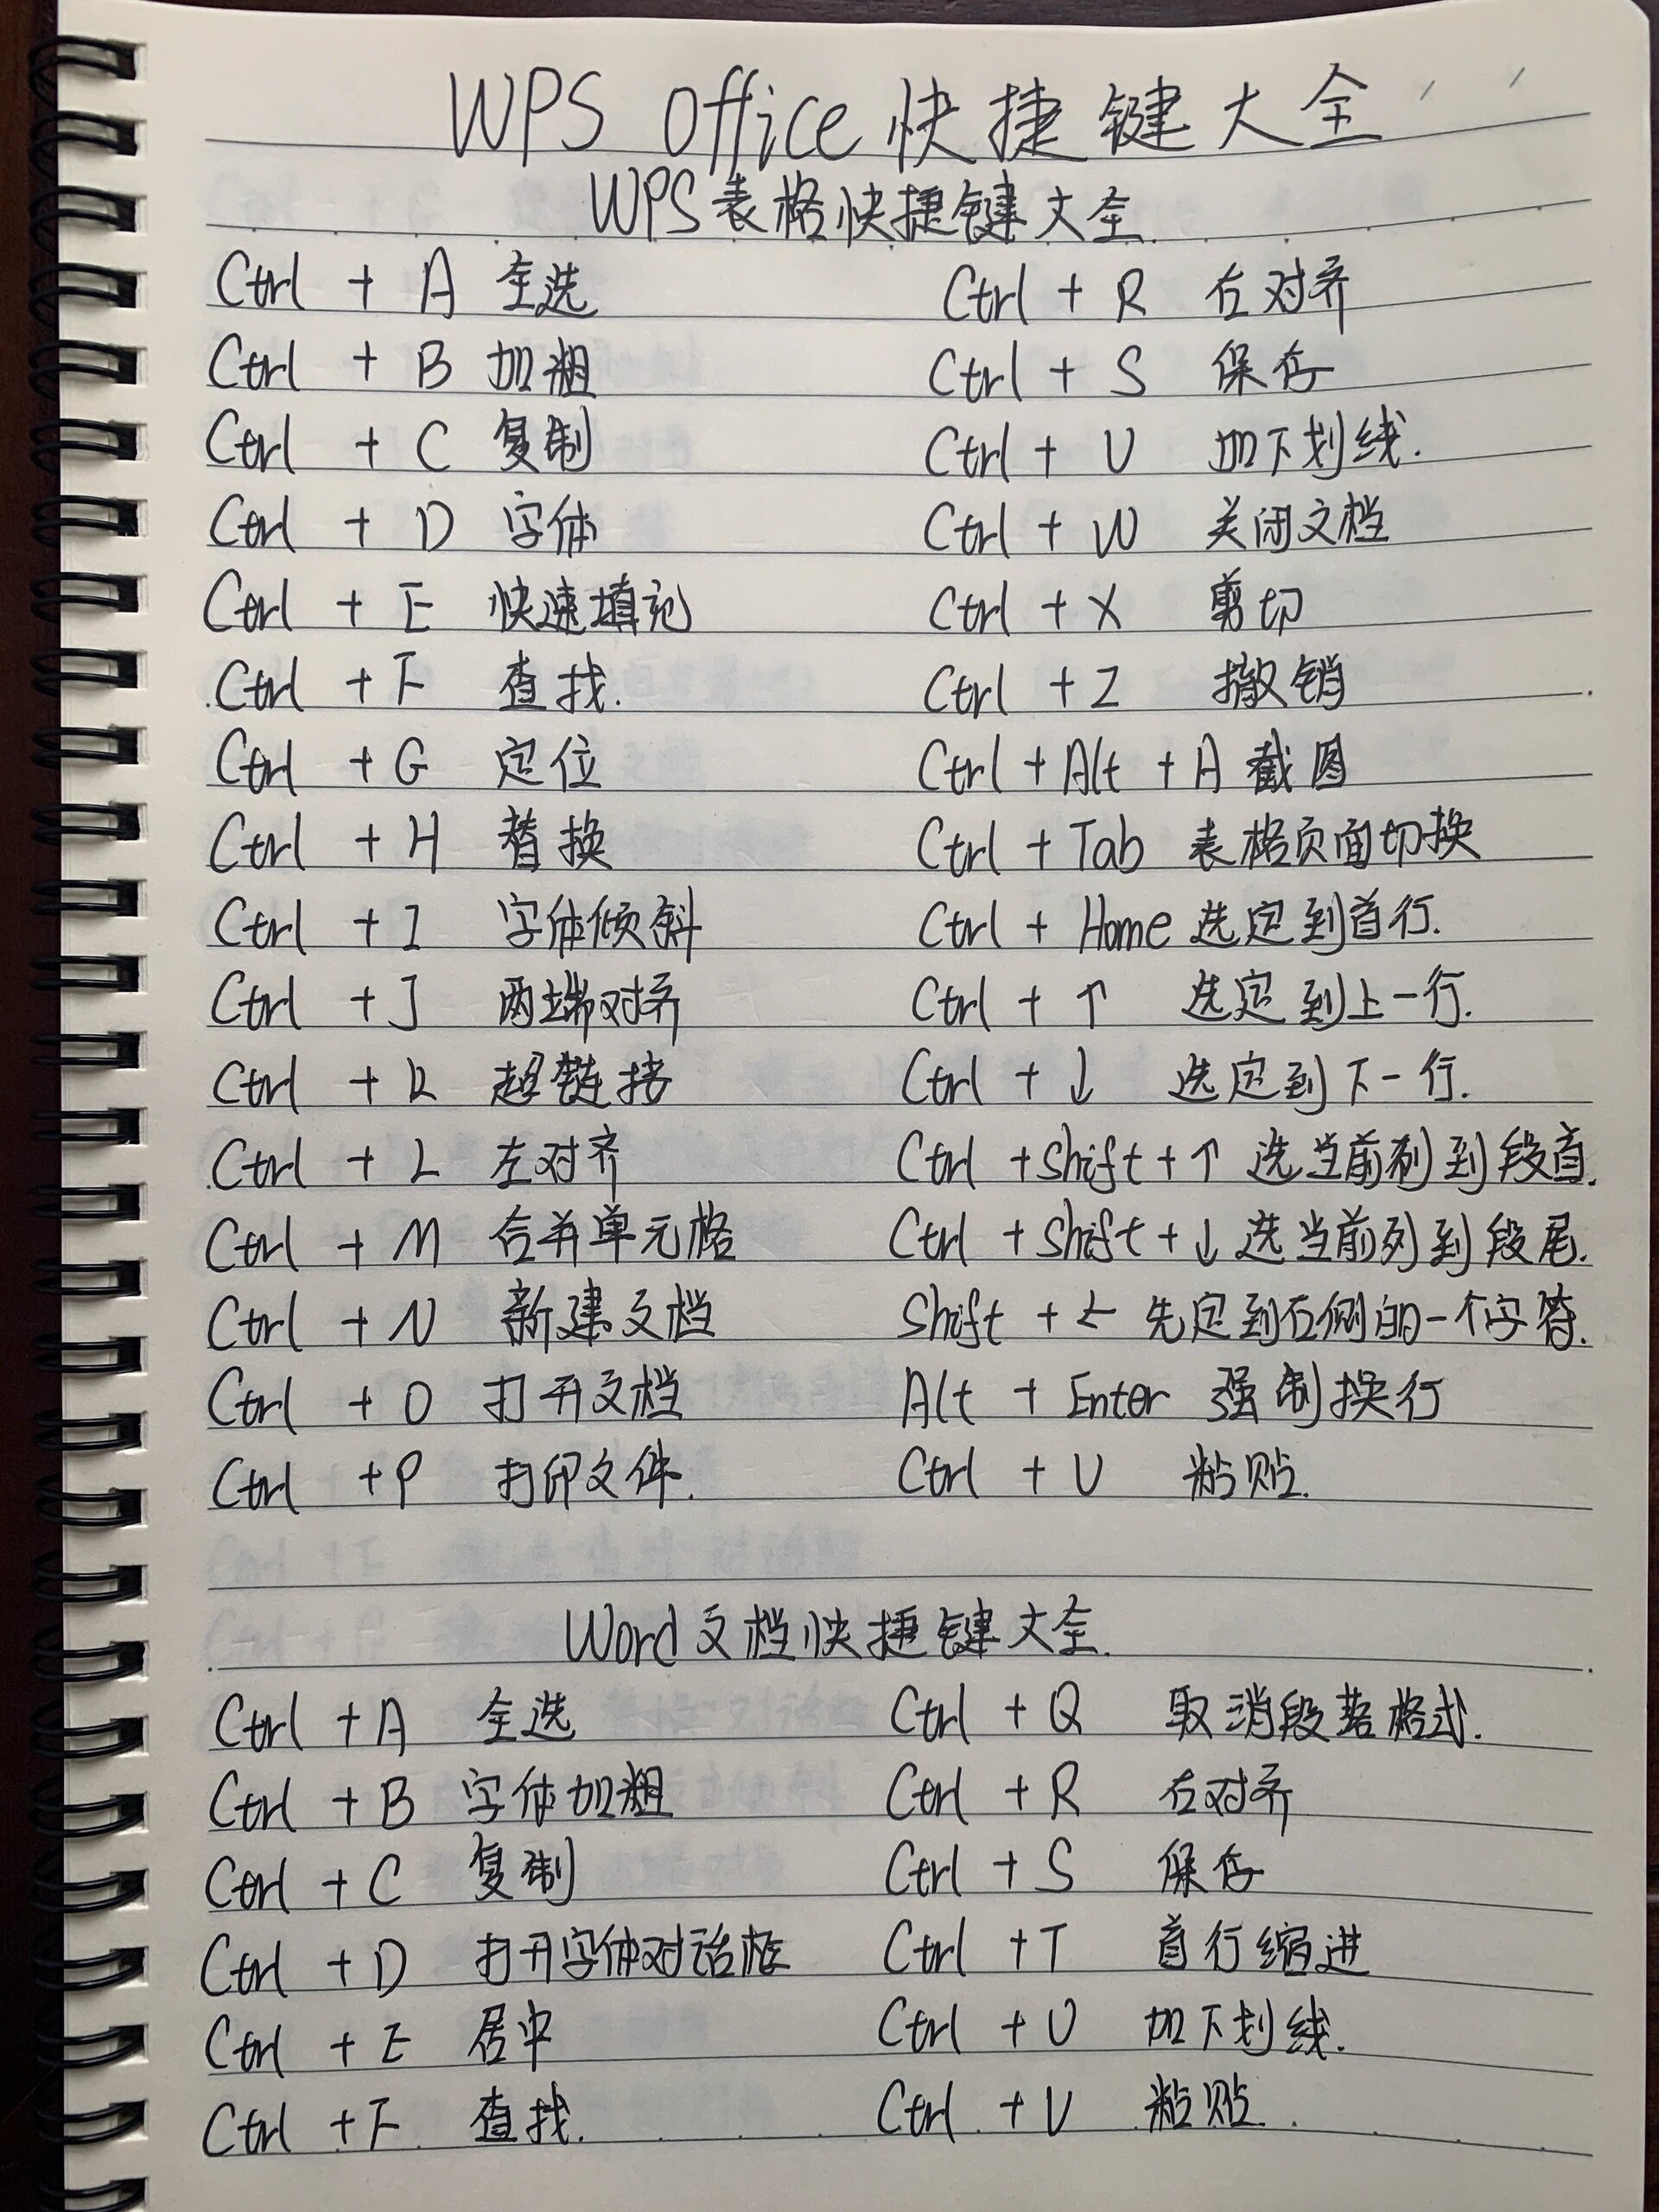 WPS Office 快捷键大全
WPS表格快捷键大全
Ctrl + A 全选
Ctrl + B 加粗
Ctrl + C 复制
Ctrl + D 字体
Ctrl + E 快速填充
Ctrl + F 查找.
Ctrl + G 定位
Ctrl + H 替换
Ctrl + I 字体倾斜
Ctrl + J 两端对齐
Ctrl + K 超链接
Ctrl + L 左对齐
Ctrl + M 合并单元格
Ctrl + N 新建文档
Ctrl + O 打开文档
Ctrl + P 打印文件.
Ctrl + R 右对齐
Ctrl + S 保存
Ctrl + U 加下划线.
Ctrl + W 关闭文档
Ctrl + X 剪切
Ctrl + Z 撤销
Ctrl + Alt + A 截图
Ctrl + Tab 表格页面切换
Ctrl + Home 选定到首行.
Ctrl + ↑ 选定到上一行.
Ctrl + ↓ 选定到下一行.
Ctrl + Shift + ↑ 选当前列到段首.
Ctrl + Shift + ↓ 选当前列到段尾.
Shift + ← 先定到右侧的一个字符.
Alt + Enter 强制换行
Ctrl + V 粘贴.
Word文档快捷键大全.
Ctrl + A 全选
Ctrl + B 字体加粗
Ctrl + C 复制
Ctrl + D 打开字体对话框
Ctrl + E 居中
Ctrl + F 查找.
Ctrl + Q 取消段落格式.
Ctrl + R 右对齐
Ctrl + S 保存
Ctrl + T 首行缩进
Ctrl + U 加下划线.
Ctrl + V 粘贴.